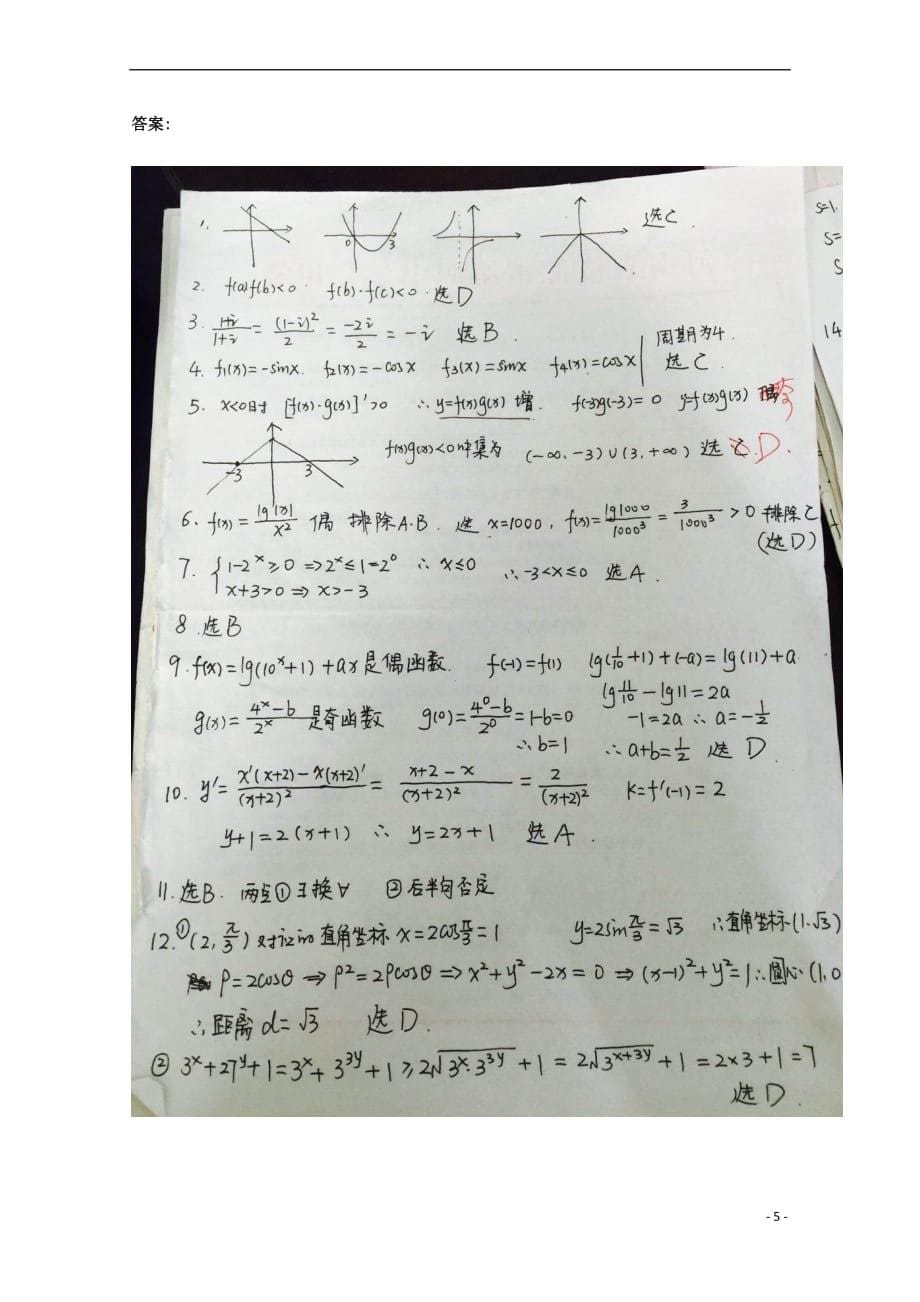 答案：
S=1.
1. 0 3 选C.
S=
2. f(a)f(b)<0. f(b)·f(c)<0. 选D
S
3. 1+i/1+i = (1-i)²/2 = -2i/2 = -i 选B.
14
4. f₁(x)=-sinx. f₂(x)=-cosx f₃(x)=sinx f₄(x)=cosx | 周期为4. 选C.
5. x<0时 [f(x)·g(x)]'>0 ∴y=f(x)g(x)增. f(-3)g(-3)=0 y=f(x)g(x)
-3 3 f(x)g(x)<0解集为 (-∞,-3)∪(3,+∞) 选 D.
6. f(x)=lg|x|/x² 偶 排除A.B. 选 x=1000, f(x)=lg1000/1000³=3/1000³>0 排除C
(选D)
7. {1-2ˣ≥0 ⇒2ˣ≤1=2⁰ ∴x≤0 ∴-3<x≤0 选A.
x+3>0 ⇒ x>-3
8. 选B
9. f(x)=lg(10ˣ+1)+ax是偶函数. f(-1)=f(1) lg(1/10+1)+(-a)=lg(11)+a.
lg11/10-lg11=2a
g(x)=4ˣ-b/2ˣ 是奇函数 g(0)=4⁰-b/2⁰=1-b=0 -1=2a ∴a=-1/2
∴b=1 ∴a+b=1/2 选D.
10. y'=x'(x+2)-x(x+2)'/(x+2)²=x+2-x/(x+2)²=2/(x+2)² K=f'(-1)=2
y+1=2(x+1) ∴ y=2x+1 选A.
11. 选B. 两点①∃换∀ ②后半句否定
12.①(2,π/3)对应的直角坐标x=2cosπ/3=1 y=2sinπ/3=√3 ∴直角坐标(1.√3)
ρ=2cosθ⇒ρ²=2ρcosθ⇒x²+y²-2x=0⇒(x-1)²+y²=1∴圆心(1,0
∴距离d=√3 选D.
② 3ˣ+27ʸ+1=3ˣ+3³ʸ+1≥2√3ˣ·3³ʸ+1=2√3ˣ⁺³ʸ+1=2×3+1=7
选D.
- 5 -